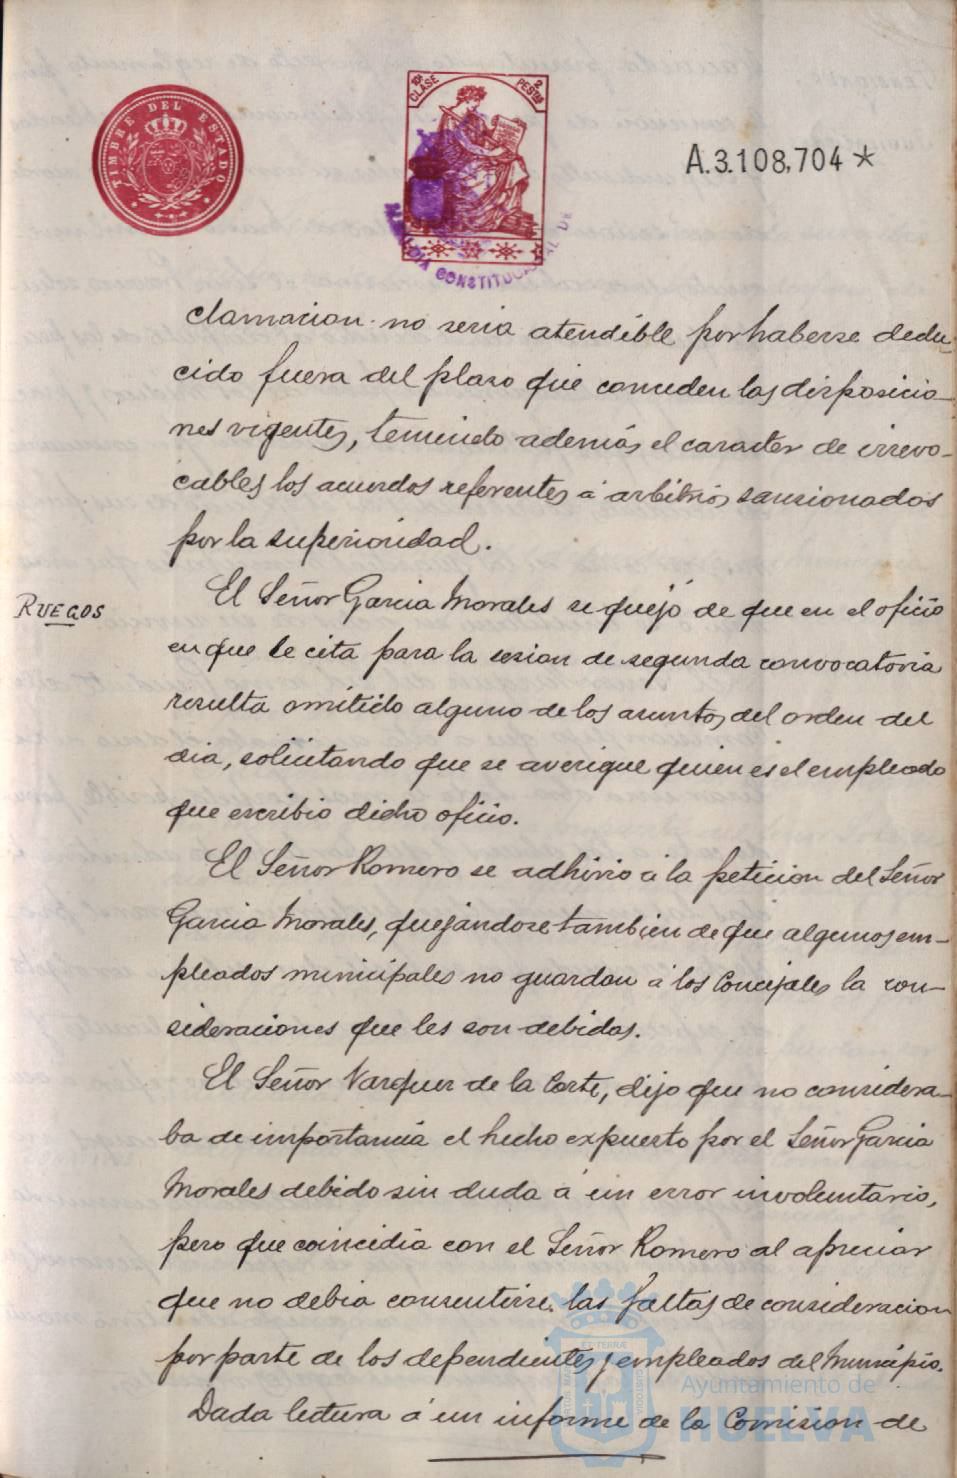 TIMBRE DEL ESTADO
10ª CLASE 2 PESTAS
ALCALDIA CONSTITUCIONAL DE
A.3.108,704 *
clamacion no seria atendible por haberse dedu-
cido fuera del plaso que conceden las disposicio-
nes vigentes, teniendo además el caracter de irrevo-
cables los acuerdos referentes á arbitrios sancionados
por la superioridad.
RUEGOS
El Señor Garcia Morales se quejó de que en el oficio
en que se cita para la sesion de segunda convocatoria
resulta omitido alguno de los asuntos del orden del
dia, solicitando que se averigue quien es el empleado
que escribio dicho oficio.
El Señor Romero se adhirio á la peticion del Señor
Garcia Morales, quejándose tambien de que algunos em-
pleados municipales no guardan á los Concejales la con-
sideraciones que les son debidas.
El Señor Vazquez de la Corte, dijo que no considera-
ba de importancia el hecho expuesto por el Señor Garcia
Morales debido sin duda á un error involuntario,
pero que coincidia con el Señor Romero al apreciar
que no debia consentirse las faltas de consideracion
por parte de los dependientes y empleados del Municipio.
Dada lectura á un informe de la Comision de
Ayuntamiento de
HUELVA